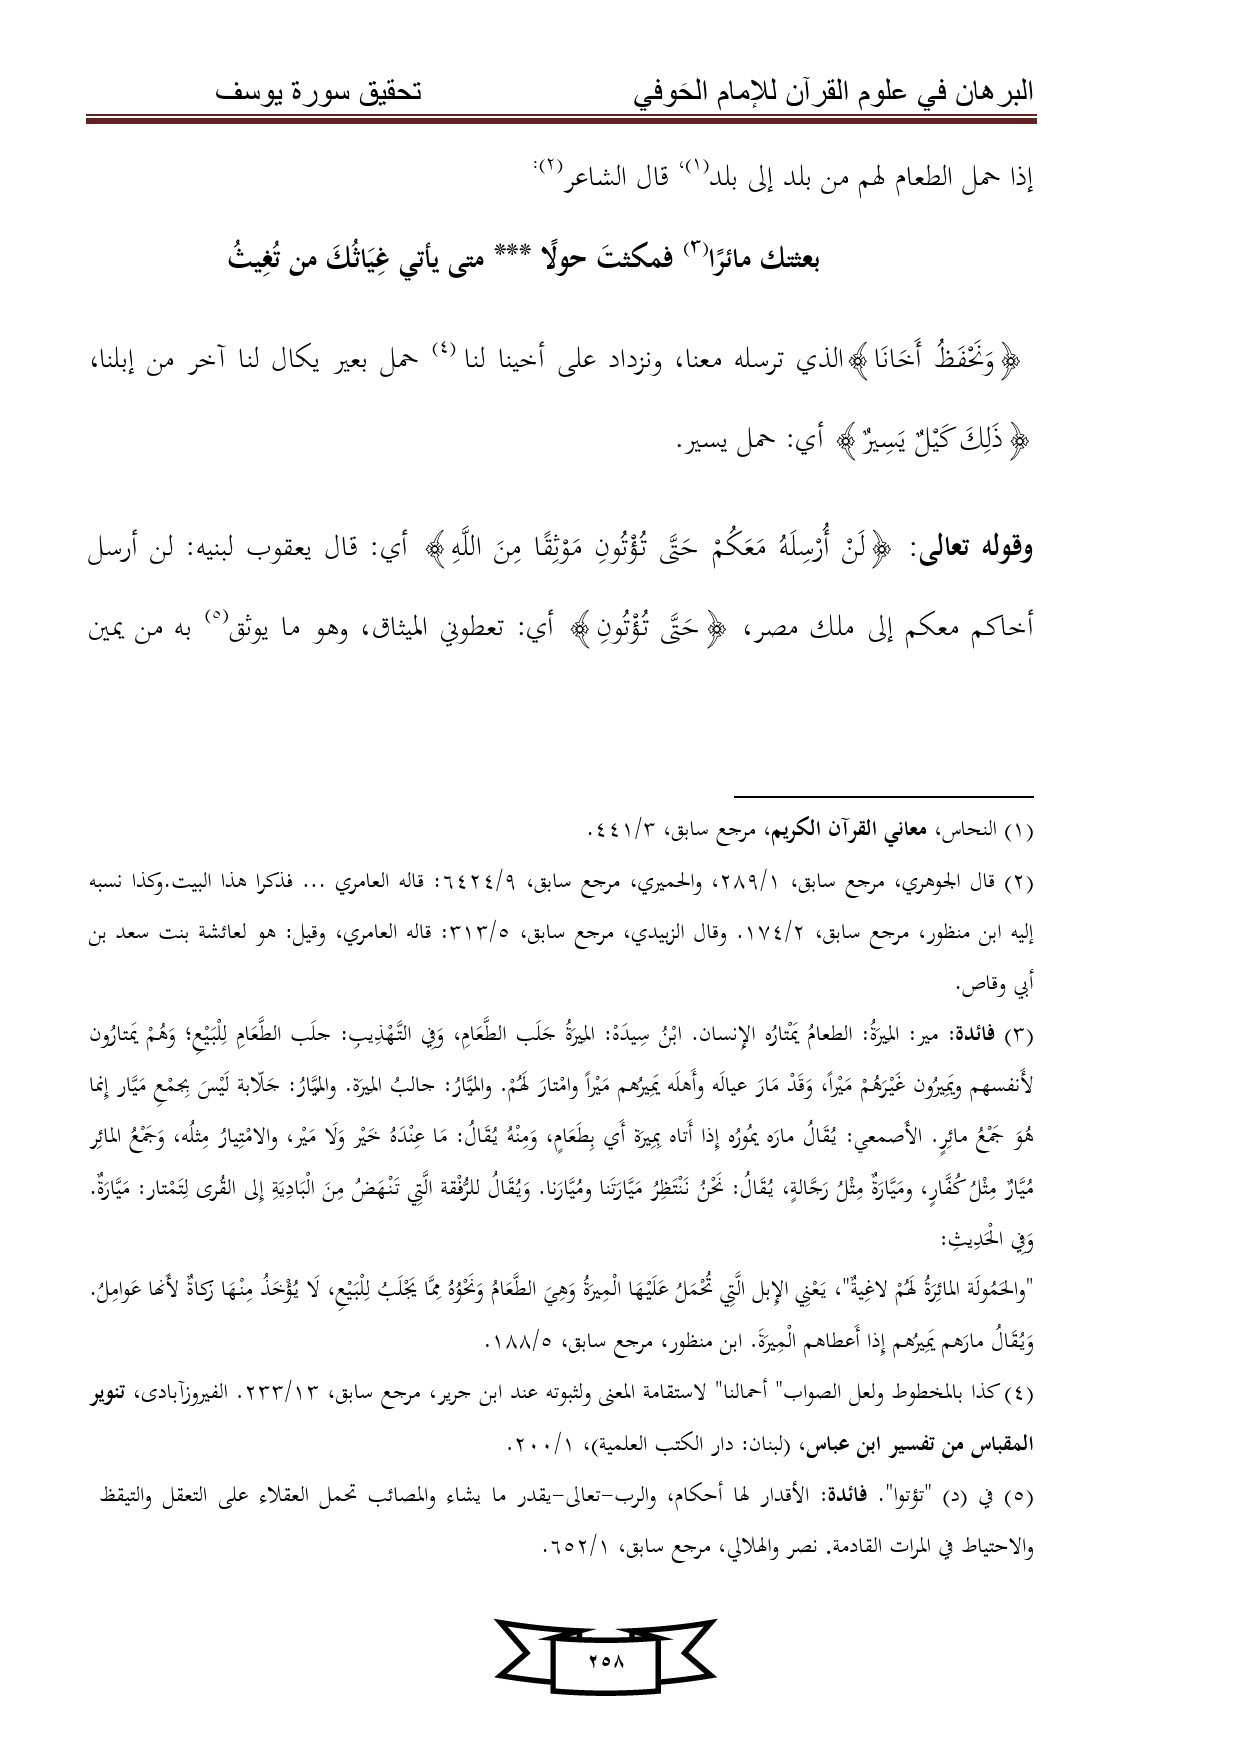 البرهان في علوم القرآن للإمام الحَوفي تحقيق سورة يوسف
إذا حمل الطعام لهم من بلد إلى بلد(١)، قال الشاعر(٢):
بعثتك مائرًا(٣) فمكثتَ حولًا *** متى يأتي غِيَاثُكَ من تُغِيثُ
﴿وَنَحْفَظُ أَخَانَا﴾الذي ترسله معنا، ونزداد على أخينا لنا (٤) حمل بعير يكال لنا آخر من إبلنا،
﴿ذَلِكَ كَيْلٌ يَسِيرٌ﴾ أي: حمل يسير.
وقوله تعالى: ﴿لَنْ أُرْسِلَهُ مَعَكُمْ حَتَّى تُؤْتُونِ مَوْثِقًا مِنَ اللَّهِ﴾ أي: قال يعقوب لبنيه: لن أرسل
أخاكم معكم إلى ملك مصر، ﴿حَتَّى تُؤْتُونِ﴾ أي: تعطوني الميثاق، وهو ما يوثق(٥) به من يمين
(١) النحاس، معاني القرآن الكريم، مرجع سابق، ٤٤١/٣.
(٢) قال الجوهري، مرجع سابق، ٢٨٩/١، والحميري، مرجع سابق، ٦٤٢٤/٩: قاله العامري ... فذكرا هذا البيت.وكذا نسبه
إليه ابن منظور، مرجع سابق، ١٧٤/٢. وقال الزبيدي، مرجع سابق، ٣١٣/٥: قاله العامري، وقيل: هو لعائشة بنت سعد بن
أبي وقاص.
(٣) فائدة: مير: المِيرَةُ: الطعامُ يَمْتارُه الإِنسان. ابْنُ سِيدَهْ: المِيرَةُ جَلَب الطَّعَامِ، وَفِي التَّهْذِيبِ: جلَب الطَّعَامِ لِلْبَيْعِ؛ وَهُمْ يَمتارُون
لأَنفسهم ويَمِيرُون غَيْرَهُمْ مَيْراً، وَقَدْ مَارَ عيالَه وأَهلَه يَمِيرُهم مَيْراً وامْتارَ لَهُمْ. والميَّارُ: جالبُ المِيرَة. والميَّارُ: جَلّابة لَيْسَ بِجمْعِ مَيَّار إِنما
هُوَ جَمْعُ مائِرٍ. الأَصمعي: يُقَالُ مارَه يمُورُه إِذا أَتاه بِمِيرَة أَي بِطَعَامٍ، وَمِنْهُ يُقَالُ: مَا عِنْدَهُ خَيْر وَلَا مَيْر، والامْتِيارُ مِثلُه، وَجَمْعُ المائِر
مُيَّارٌ مِثْلُ كُفَّارٍ، ومَيَّارَةٌ مِثْلُ رَجَّالةٍ، يُقَالُ: نَحْنُ نَنْتَظِرُ مَيَّارَتَنا ومُيَّارَنا. وَيُقَالُ للرُّفْقة الَّتِي تَنْهَضُ مِنَ الْبَادِيَةِ إِلى القُرى لِتَمْتار: مَيَّارَةٌ.
وَفِي الْحَدِيثِ:
"والحَمُولَة المائِرَةُ لَهُمْ لاغِيةٌ"، يَعْنِي الإِبل الَّتِي تُحْمَلُ عَلَيْهَا الْمِيرَةُ وَهِيَ الطَّعَامُ وَنَحْوُهُ مِمَّا يُجْلَبُ لِلْبَيْعِ، لَا يُؤْخَذُ مِنْهَا زكاةٌ لأَنها عَوامِلُ.
وَيُقَالُ مارَهم يَمِيرُهم إِذا أَعطاهم الْمِيرَةَ. ابن منظور، مرجع سابق، ١٨٨/٥.
(٤) كذا بالمخطوط ولعل الصواب" أحمالنا" لاستقامة المعنى ولثبوته عند ابن جرير، مرجع سابق، ٢٣٣/١٣. الفيروزآبادى، تنوير
المقباس من تفسير ابن عباس، (لبنان: دار الكتب العلمية)، ٢٠٠/١.
(٥) في (د) "تؤتوا". فائدة: الأقدار لها أحكام، والرب-تعالى-يقدر ما يشاء والمصائب تحمل العقلاء على التعقل والتيقظ
والاحتياط في المرات القادمة. نصر والهلالي، مرجع سابق، ٦٥٢/١.
٢٥٨